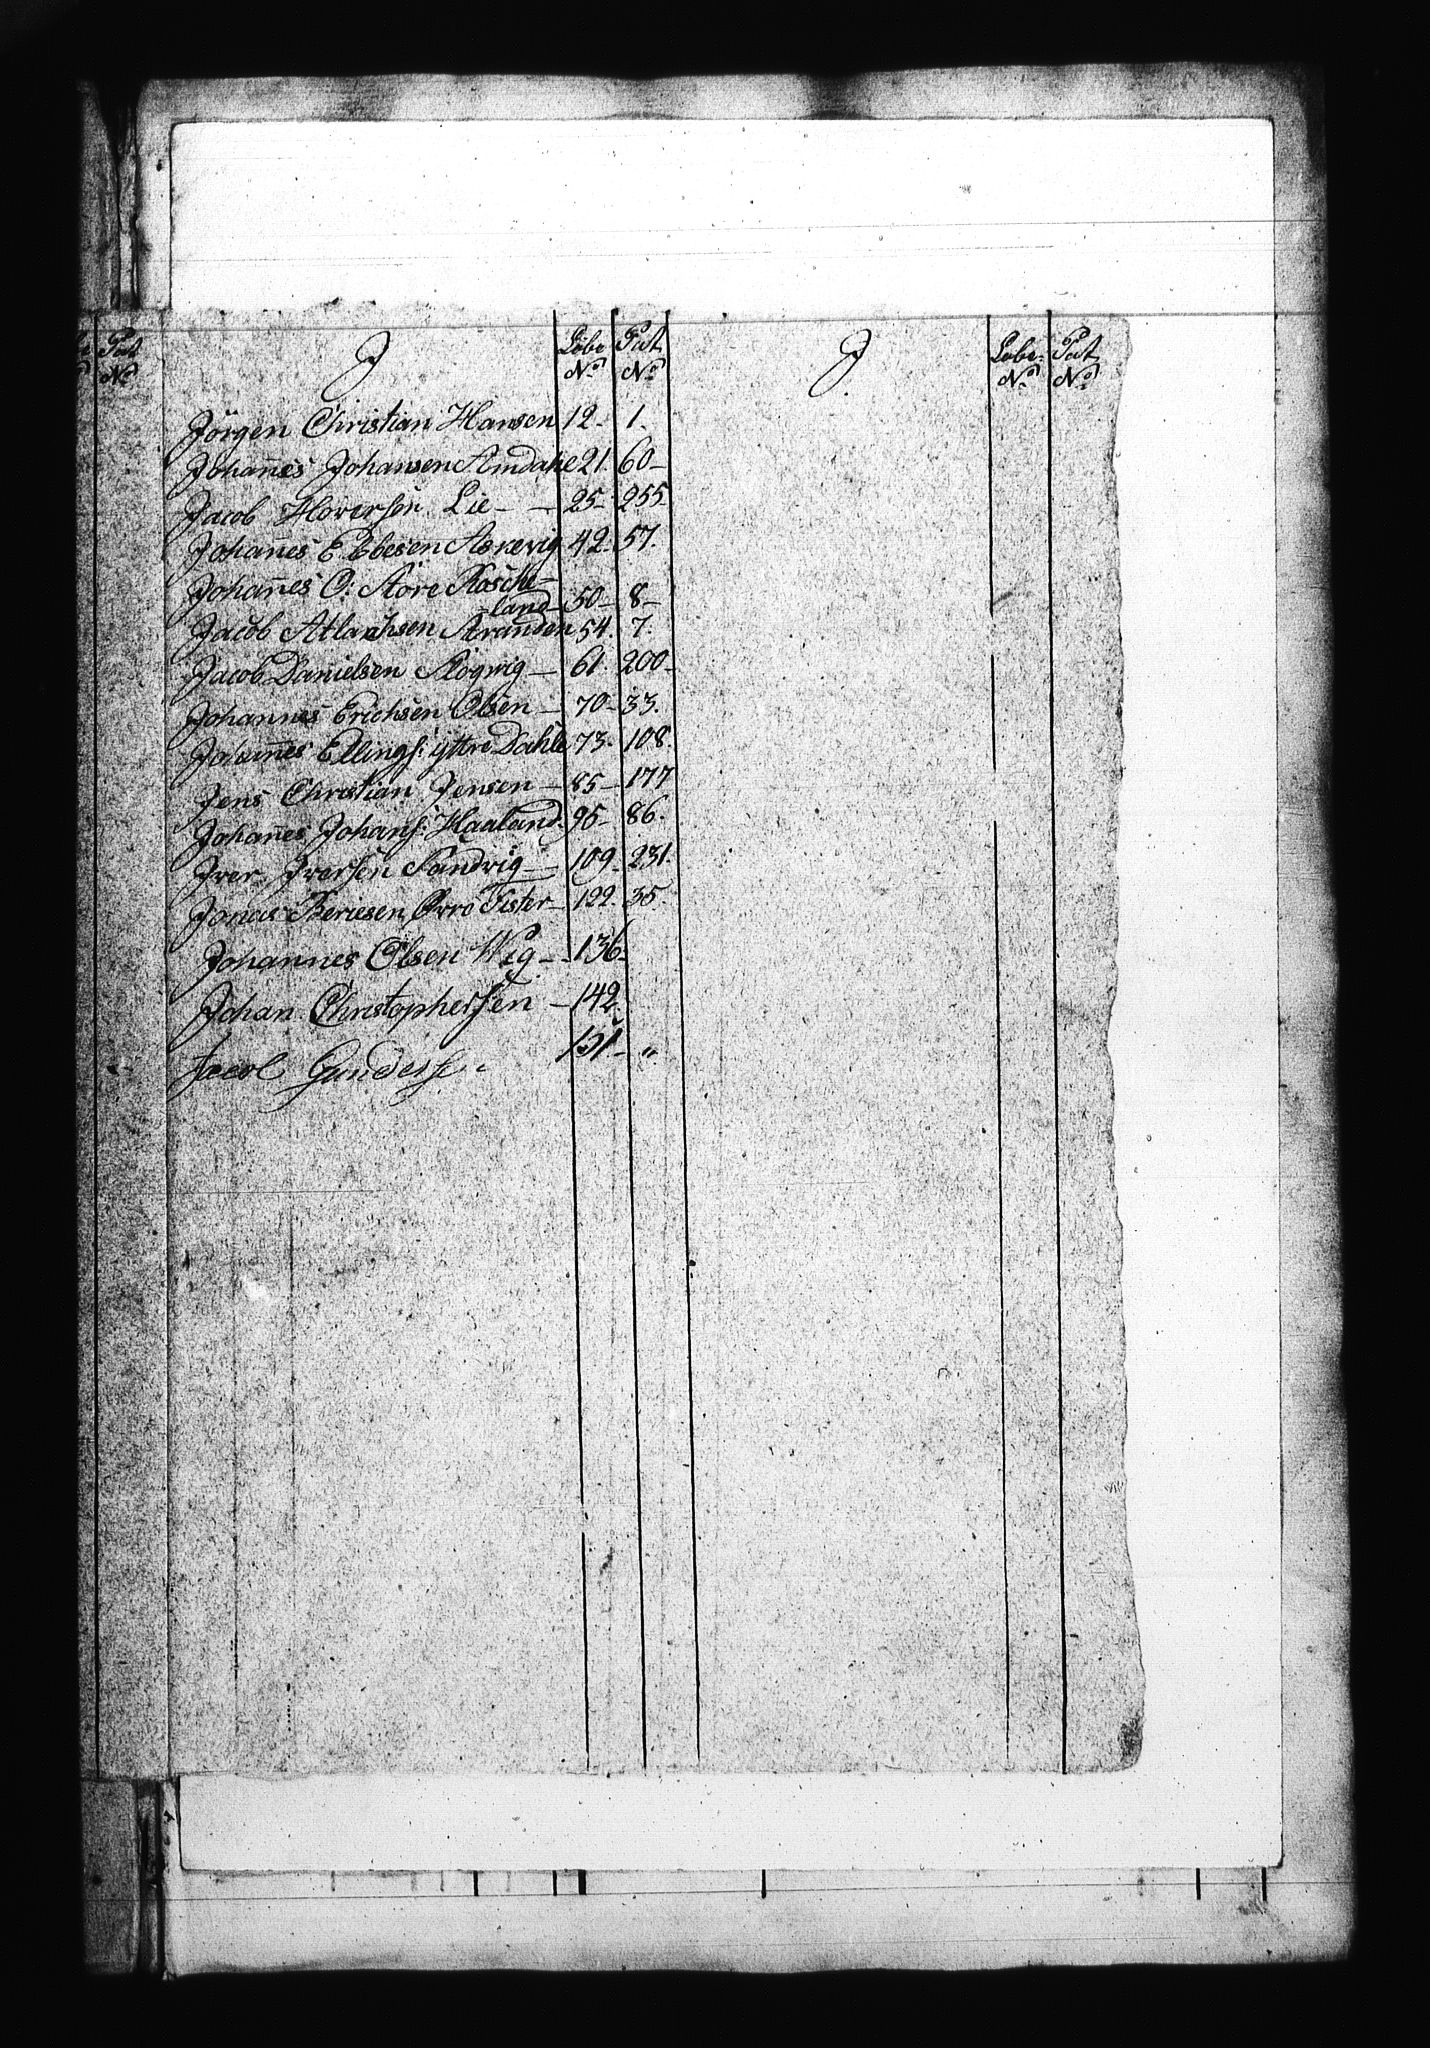 Pat
No
J
Löbe
No
Pat
No
Jörgen Christian Hansen 12. 1.
Johan̄es Johansen Amdahl 21. 60
Jacob Hoversen Lie 25 255
Johan̄es E. Ebesen Askevig 42 57.
Johan̄es O. Støre Rosche-
land 50 8
Jacob Atlachsen Stranden 54. 7.
Jacob Danielsen Skogvig 61. 200
Johannes Erichsen Olsen 70 33.
Johan̄es Ellings: yttre Dahle 73. 108.
Jens Christian Jensen 85 177
Johan̄es Johans: Haaland 95 86.
Iver Iversen Sandvig 109 231.
Jonas Beriesen Øvre Fister 122. 35.
Johannes Olsen Wig 136
Johan Christophersen 142.
Gundersen 151 "
J.
Löbe
No
Pat
No